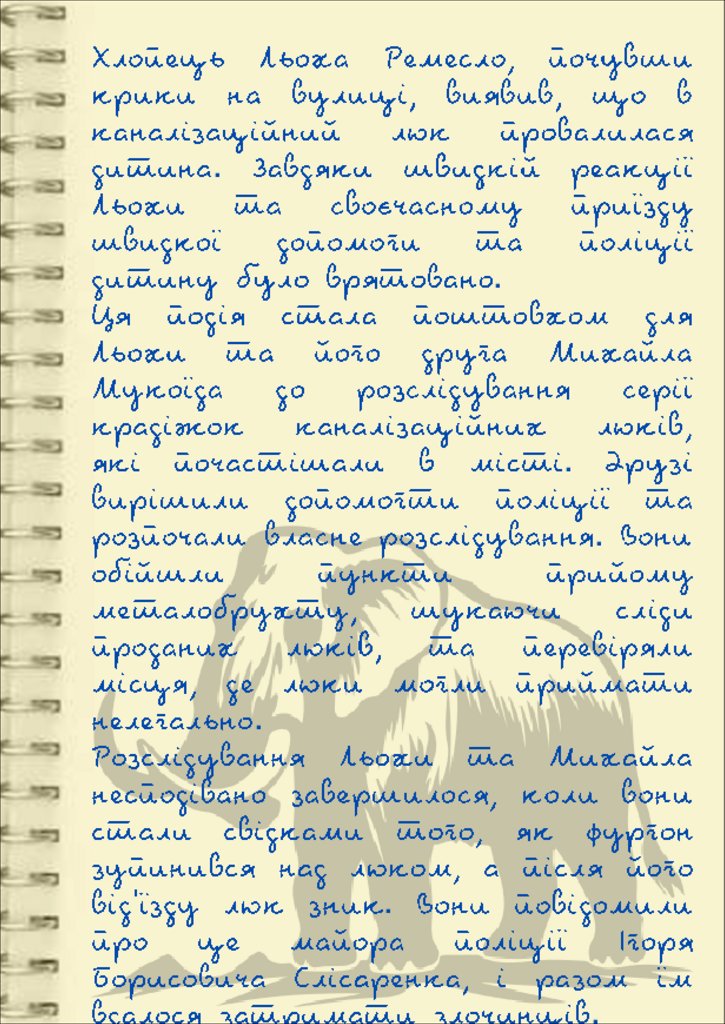 Хлопець Льоха Ремесло, почувши
крики на вулиці, виявив, що в
каналізаційний люк провалилася
дитина. Завдяки швидкій реакції
Льохи та своєчасному приїзду
швидкої допомоги та поліції
дитину було врятовано.
Ця подія стала поштовхом для
Льохи та його друга Михайла
Мукоїда до розслідування серії
крадіжок каналізаційних люків,
які почастішали в місті. Друзі
вирішили допомогти поліції та
розпочали власне розслідування. Вони
обійшли пункти прийому
металобрухту, шукаючи сліди
проданих люків, та перевіряли
місця, де люки могли приймати
нелегально.
Розслідування Льохи та Михайла
несподівано завершилося, коли вони
стали свідками того, як фургон
зупинився над люком, а після його
від'їзду люк зник. Вони повідомили
про це майора поліції Ігоря
Борисовича Слісаренка, і разом їм
вдалося затримати злочинців.